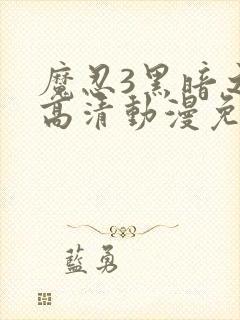 魔忍3黑暗
高清動漫免
藍勇